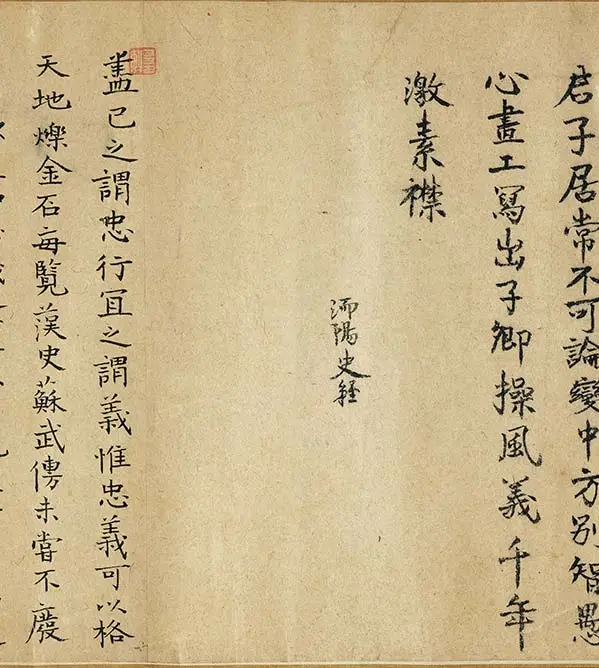 君子居常不可論變中方别智愚
心畫工寫出子卿操風義千年
激素襟
沛陽史經
盡已之謂忠行宜之謂義惟忠義可以格
天地爍金石每覽漢史蘇武傳未嘗不廢